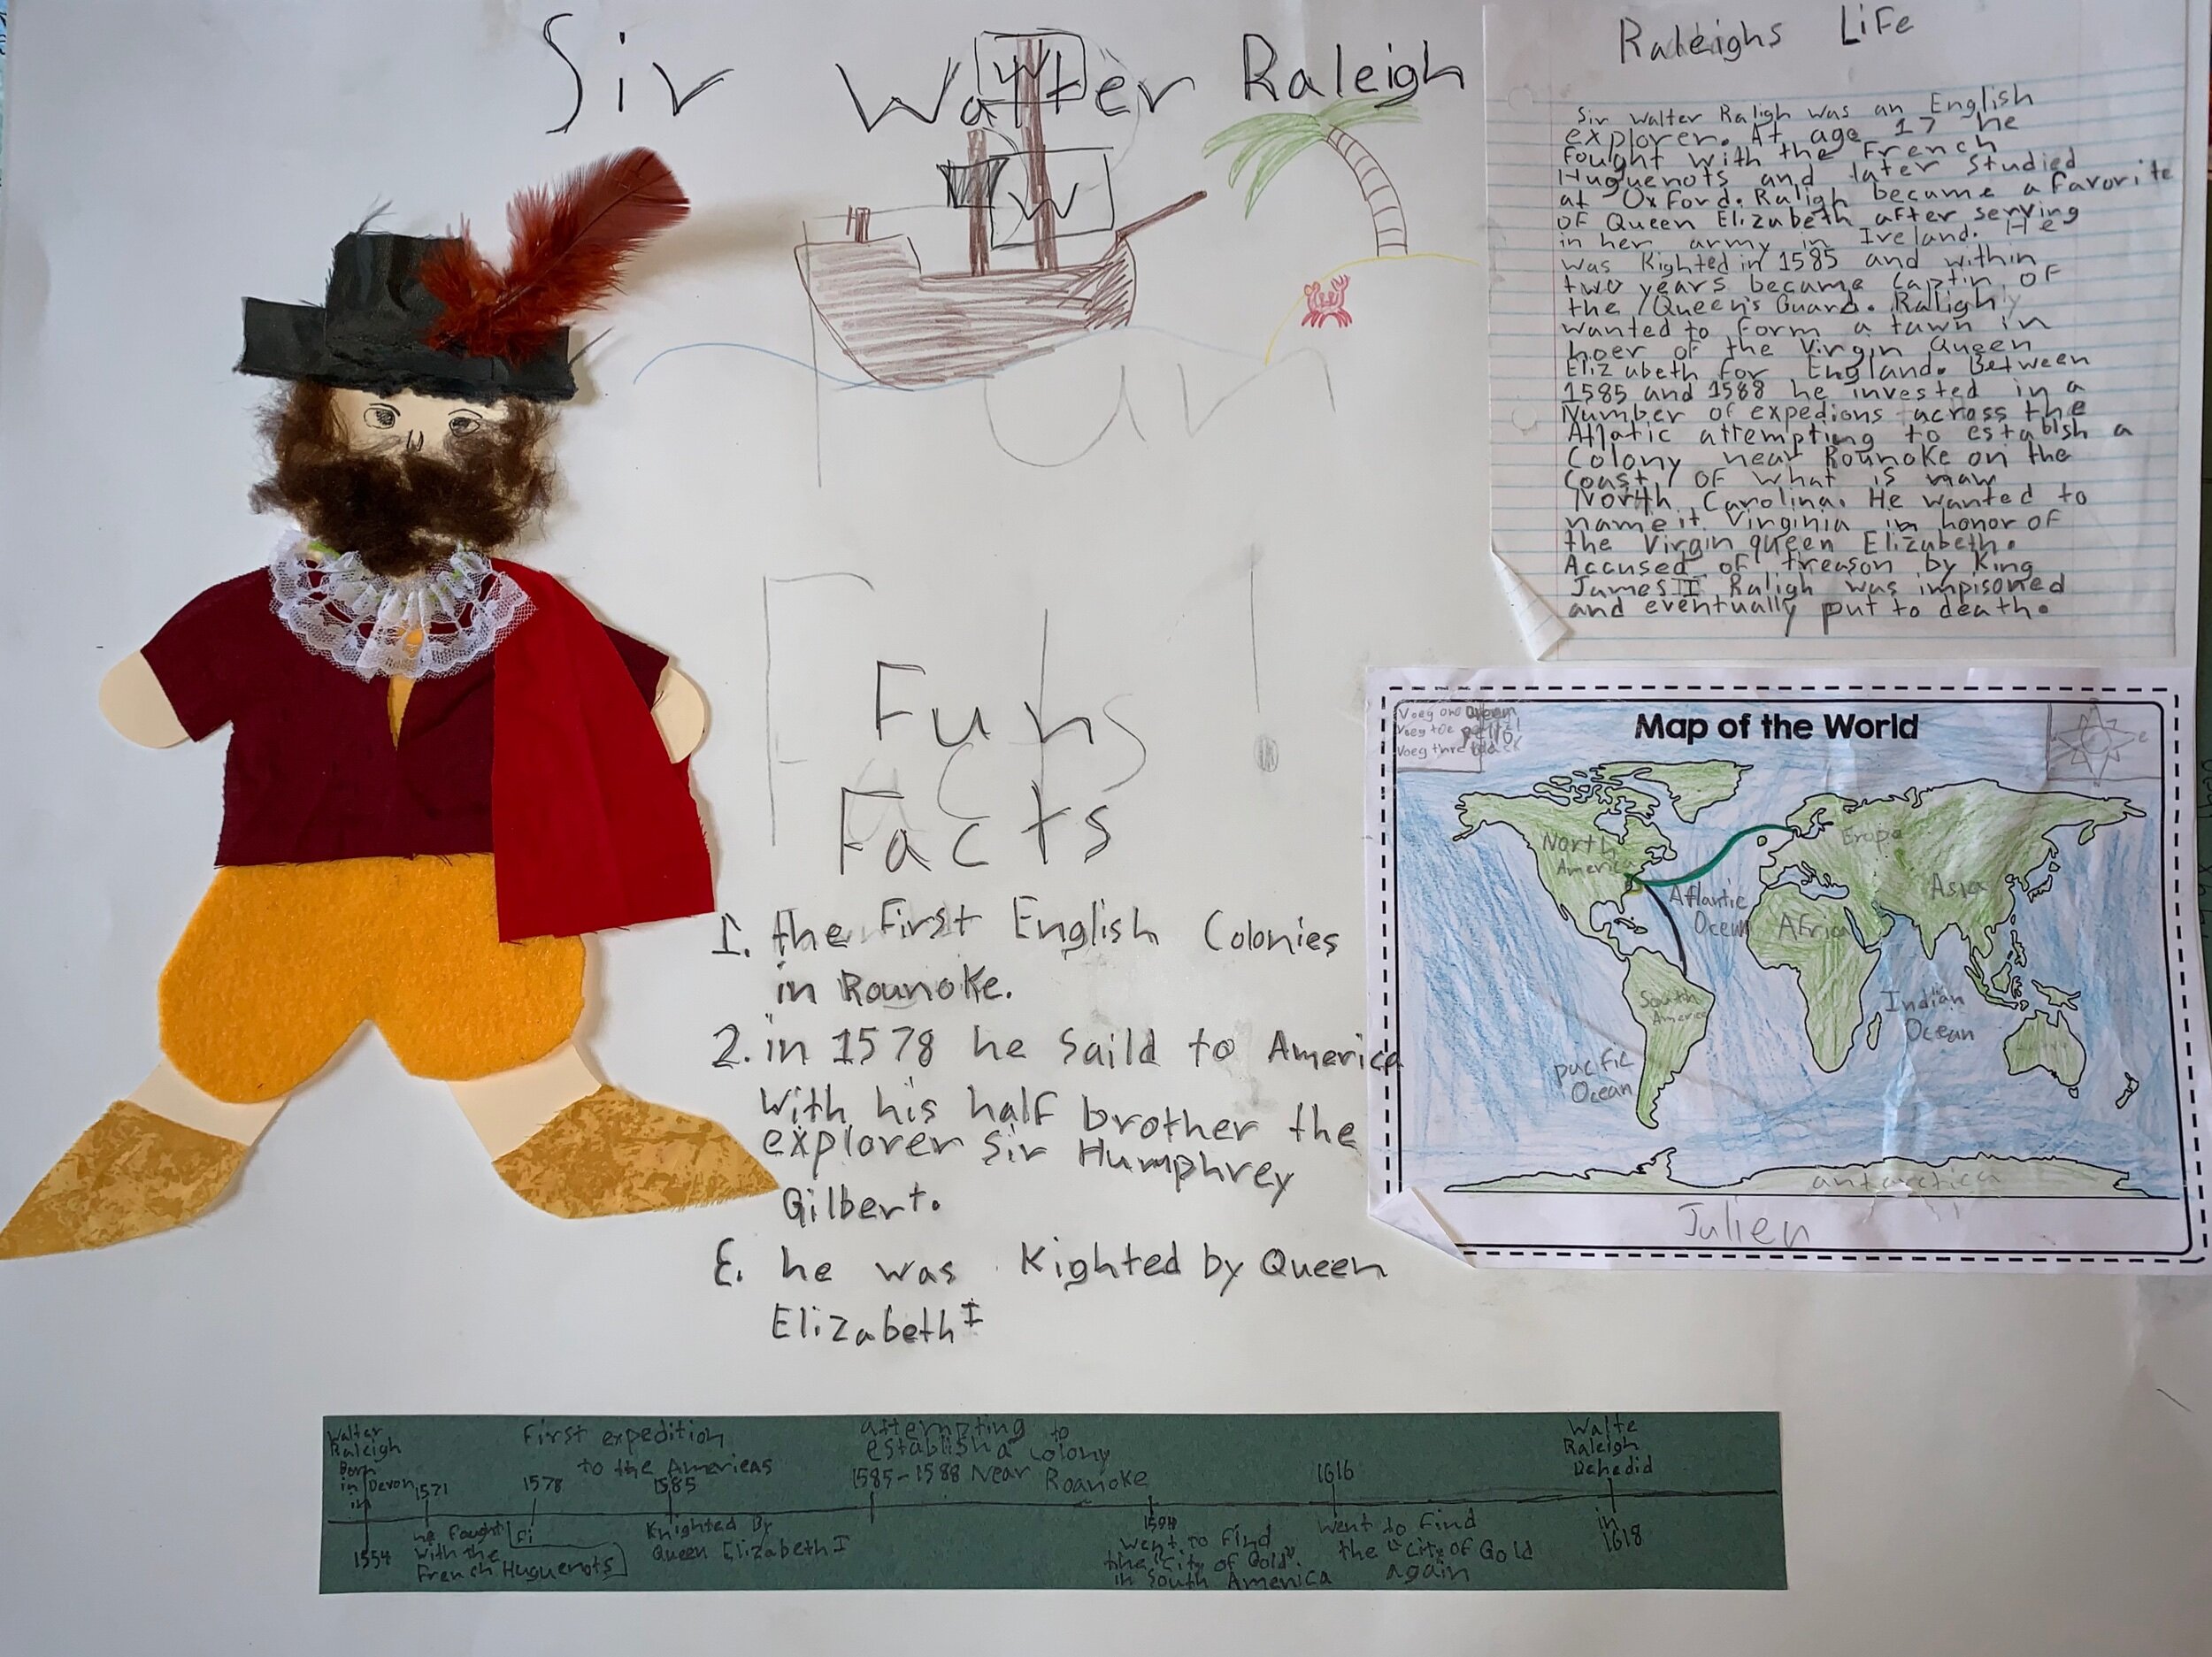 Sir Walter Raleigh
W
W
Fun
Facts!
Funs
Facts
1. the First English Colonies
in Rounoke.
2. in 1578 he saild to America
With his half brother the
explorer Sir Humphrey
Gilbert.
3. he was Kighted by Queen
Elizabeth I
Raleighs Life
Sir Walter Raligh was an English
explorer. At age 17 he
fought with the French
Huguenots and later studied
at Oxford. Raligh became a favorite
of Queen Elizabeth after serving
in her army in Ireland. He
was Kighted in 1585 and within
two years became Captin of
the Queen's Guard. Raligh
wanted to form a tawn in
hoer of the Virgin Queen
Elizabeth for England. Between
1585 and 1588 he invested in a
Number of expedions across the
Atlatic attempting to establsh a
Colony near Rounoke on the
Coast of what is
North Carolina. He wanted to
name it Virginia in honor of
the Virgin queen Elizabeth.
Accused of treason by King
James I Raligh was impisoned
and eventually put to death.
Map of the World
Voeg one Green
Voeg toe
Voeg thre black
e
North
America
Eropa
Asia
Atlantic
Ocean
Africa
South
America
Indian
Ocean
pacific
Ocean
antarctica
Julien
Walter
Raleigh
Born
in Devon
in
1554
1571
he fought
with the
French Huguenots
First expedition
to the Americas
1578
Fi
1585
Knighted By
Queen Elizabeth I
attempting to
establish a Colony
1585-1588 Near Roanoke
1594
Went to find
the "City of Gold"
in South America
1616
Went to find
the "City of Gold
again
Walte
Raleigh
Dehedid
in
1618